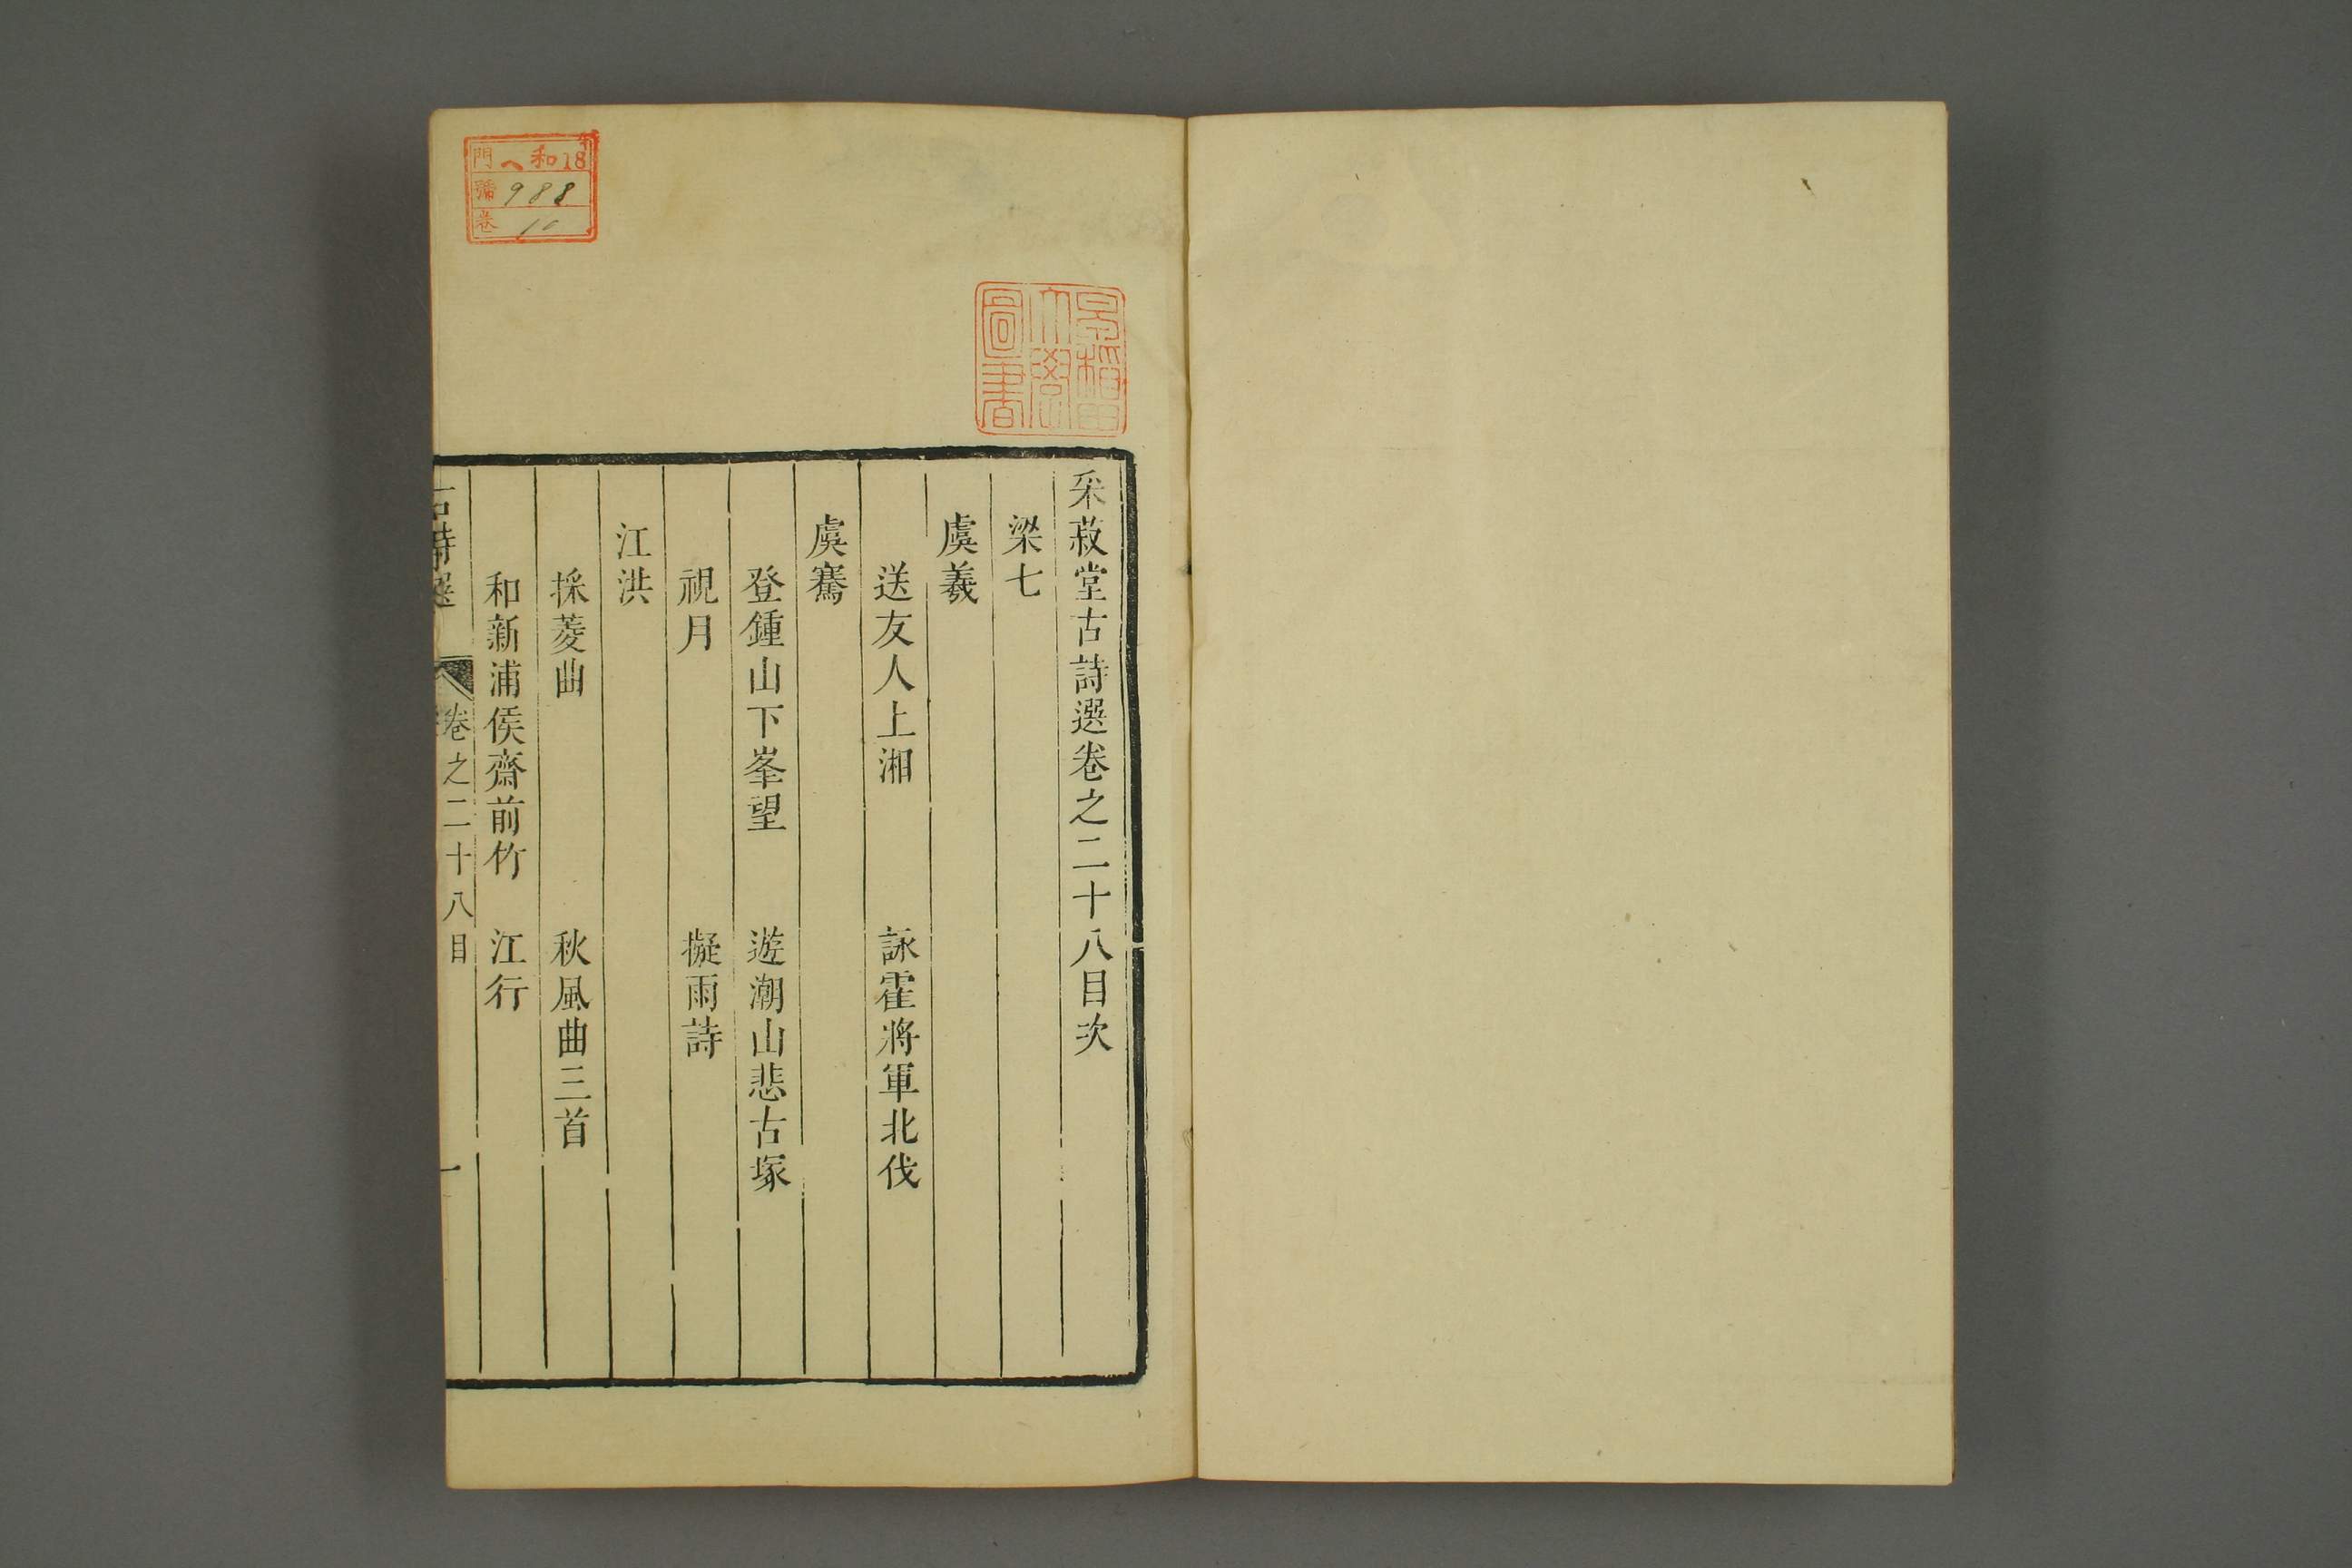 采菽堂古詩選卷之二十八目次
梁七
虞羲
送友人上湘　詠霍將軍北伐
虞騫
登鍾山下峯望　遊潮山悲古塚
視月　擬雨詩
江洪
採菱曲　秋風曲三首
和新浦侯齋前竹　江行
古詩選　卷之二十八目　一
早稻田大學圖書
門 ヘ和18
號 988
卷 10